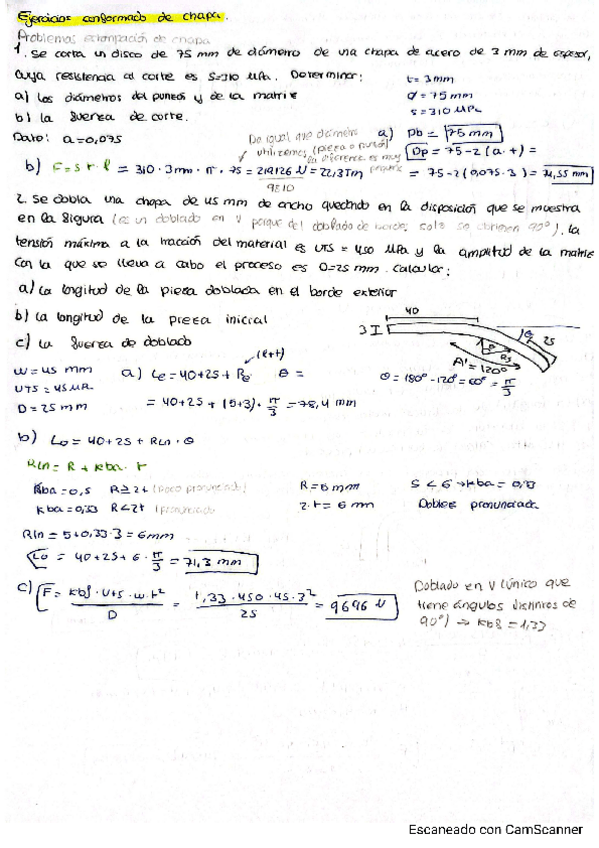 Ejercicios conformado de chapa.
Problemas estampación de chapa
1. Se corta un disco de 75 mm de diámetro de una chapa de acero de 3 mm de espesor,
cuya resistencia al corte es S=310 MPa. Determinar:
t=3mm
a) Los diámetros del punzón y de la matriz
d=75mm
b) la fuerza de corte.
s=310 MPa
Dato: a=0,075
Da igual que diámetro
utilicemos (pieza o punzón)
la diferencia es muy
pequeña
a) Db = 75 mm
Dp = 75-2(a·t) =
= 75-2(0,075·3) = 74,55 mm
b) F=s·t·l = 310·3mm·π·75 = 219126 N = 22,3Tm
9810
2. Se dobla una chapa de 45 mm de ancho quedando en la disposición que se muestra
en la figura (es un doblado en V porque del doblado de bordes solo se obtienen 90°). La
tensión máxima a la tracción del material es UTS = 450 MPa y la amplitud de la matriz
con la que se lleva a cabo el proceso es D=25mm. Calcular:
a) La longitud de la pieza doblada en el borde exterior
b) la longitud de la pieza inicial
c) La fuerza de doblado
40
3
25
A'=120°
W=45 mm
UTS=45 MPa
D=25 mm
(R+t)
a) Le=40+25+Re θ =
θ=180°-120°=60°=π/3
= 40+25+(5+3)·π/3 = 78,4 mm
b) Lo=40+25+RLn·θ
RLn = R+kba·t
kba=0,5 R≥2t (poco pronunciado)
R=6mm
5<6→kba=0,33
kba=0,33 R<2t (pronunciado
2·t=6 mm
Doblez pronunciada
Rln=5+0,33·3=6mm
Lo = 40+25+6·π/3=71,3 mm
c) F= kbf·UTS·w·t²/D = 1,33·450·45·3²/25 = 9696 N
Doblado en V (único que
tiene ángulos distintos de
90°) → kbf=1,33
Escaneado con CamScanner